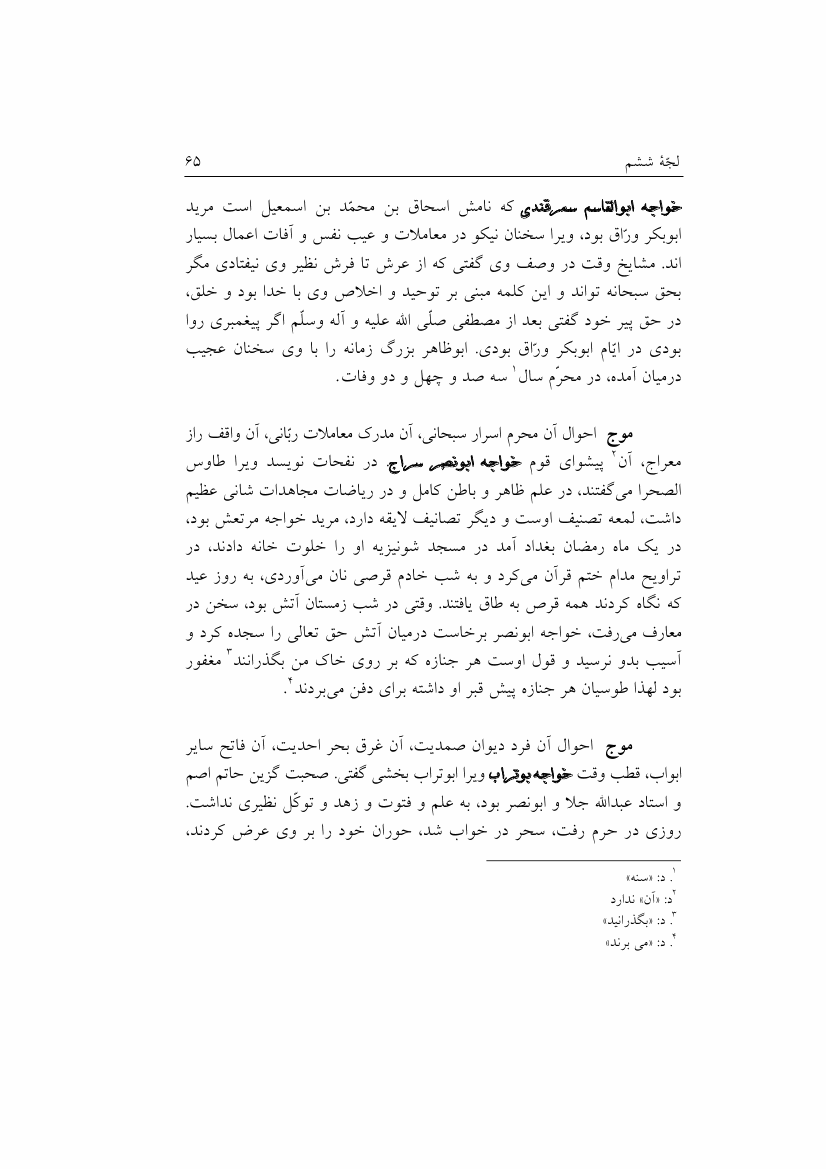 لجّهٔ ششم ۶۵
خواجه ابوالقاسم سمرقندی که نامش اسحاق بن محمّد بن اسمعیل است مرید
ابوبکر ورّاق بود، ویرا سخنان نیکو در معاملات و عیب نفس و آفات اعمال بسیار
اند. مشایخ وقت در وصف وی گفتی که از عرش تا فرش نظیر وی نیفتادی مگر
بحق سبحانه تواند و این کلمه مبنی بر توحید و اخلاص وی با خدا بود و خلق،
در حق پیر خود گفتی بعد از مصطفی صلّی الله علیه و آله وسلّم اگر پیغمبری روا
بودی در ایّام ابوبکر ورّاق بودی. ابوظاهر بزرگ زمانه را با وی سخنان عجیب
درمیان آمده، در محرّم سال۱ سه صد و چهل و دو وفات.
موج احوال آن محرم اسرار سبحانی، آن مدرک معاملات ربّانی، آن واقف راز
معراج، آن۲ پیشوای قوم خواجه ابونصر سراج. در نفحات نویسد ویرا طاوس
الصحرا می‌گفتند، در علم ظاهر و باطن کامل و در ریاضات مجاهدات شانی عظیم
داشت، لمعه تصنیف اوست و دیگر تصانیف لایقه دارد، مرید خواجه مرتعش بود،
در یک ماه رمضان بغداد آمد در مسجد شونیزیه او را خلوت خانه دادند، در
تراویح مدام ختم قرآن می‌کرد و به شب خادم قرصی نان می‌آوردی، به روز عید
که نگاه کردند همه قرص به طاق یافتند. وقتی در شب زمستان آتش بود، سخن در
معارف می‌رفت، خواجه ابونصر برخاست درمیان آتش حق تعالی را سجده کرد و
آسیب بدو نرسید و قول اوست هر جنازه که بر روی خاک من بگذرانند۳ مغفور
بود لهذا طوسیان هر جنازه پیش قبر او داشته برای دفن می‌بردند۴.
موج احوال آن فرد دیوان صمدیت، آن غرق بحر احدیت، آن فاتح سایر
ابواب، قطب وقت خواجه بوتراب ویرا ابوتراب بخشی گفتی. صحبت گزین حاتم اصم
و استاد عبدالله جلا و ابونصر بود، به علم و فتوت و زهد و توکّل نظیری نداشت.
روزی در حرم رفت، سحر در خواب شد، حوران خود را بر وی عرض کردند،
۱. د: «سنه»
۲د: «آن» ندارد
۳. د: «بگذرانید»
۴. د: «می برند»